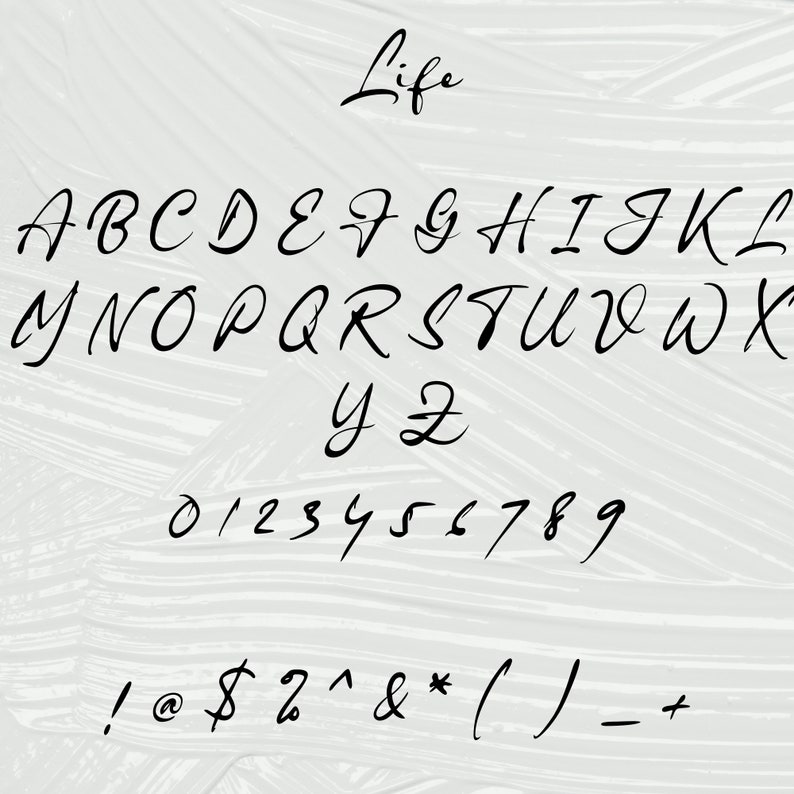 Life
A B C D E F G H I J K L
M N O P Q R S T U V W X
Y Z
0 1 2 3 4 5 6 7 8 9
! @ $ % ^ & * ( ) _ +